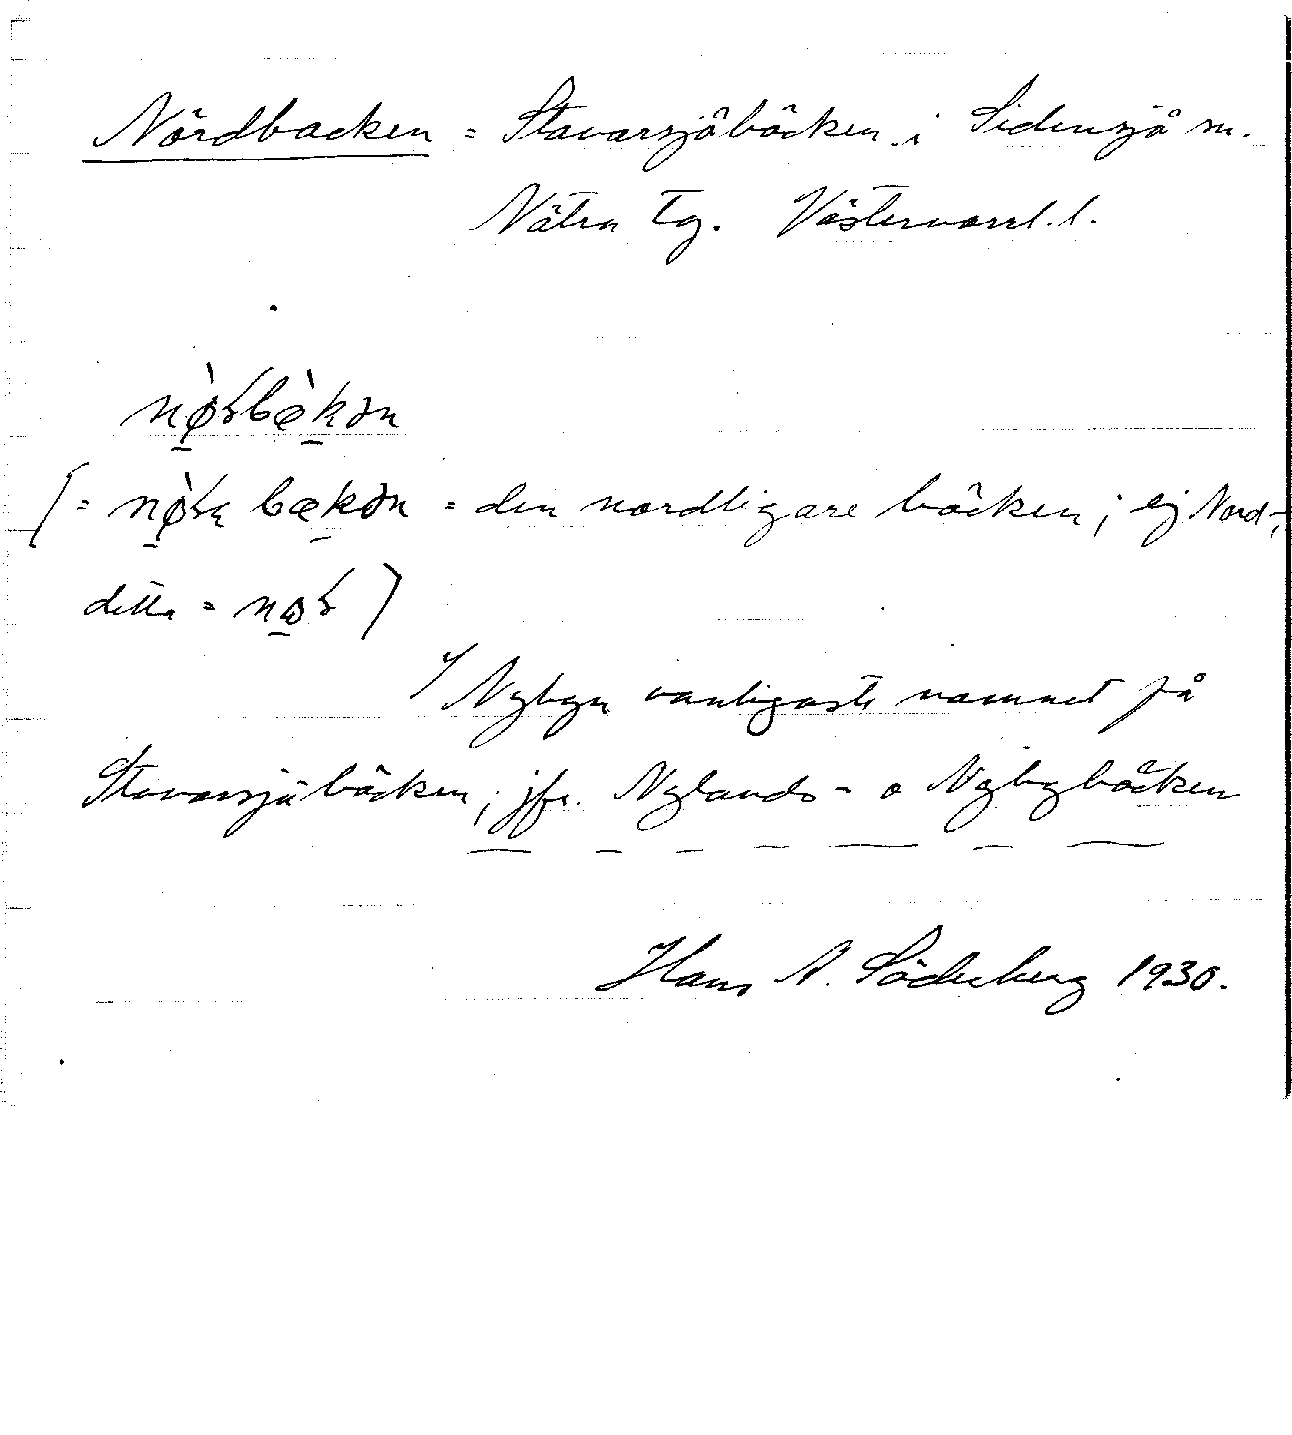 Nördbacken = Stavarsjöbäcken i Sidensjö sn.
Nätra tg. Västernorrl. l.
nø̀rbæ̀kən
(= nø̀rɑ bækən = den nordligare bäcken; ej Nord-,
detta = nor)
I Nybyn vanligaste namnet på
Stavarsjöbäcken; jfr. Nylands- o Nybybäcken
Hans A. Söderberg 1930.